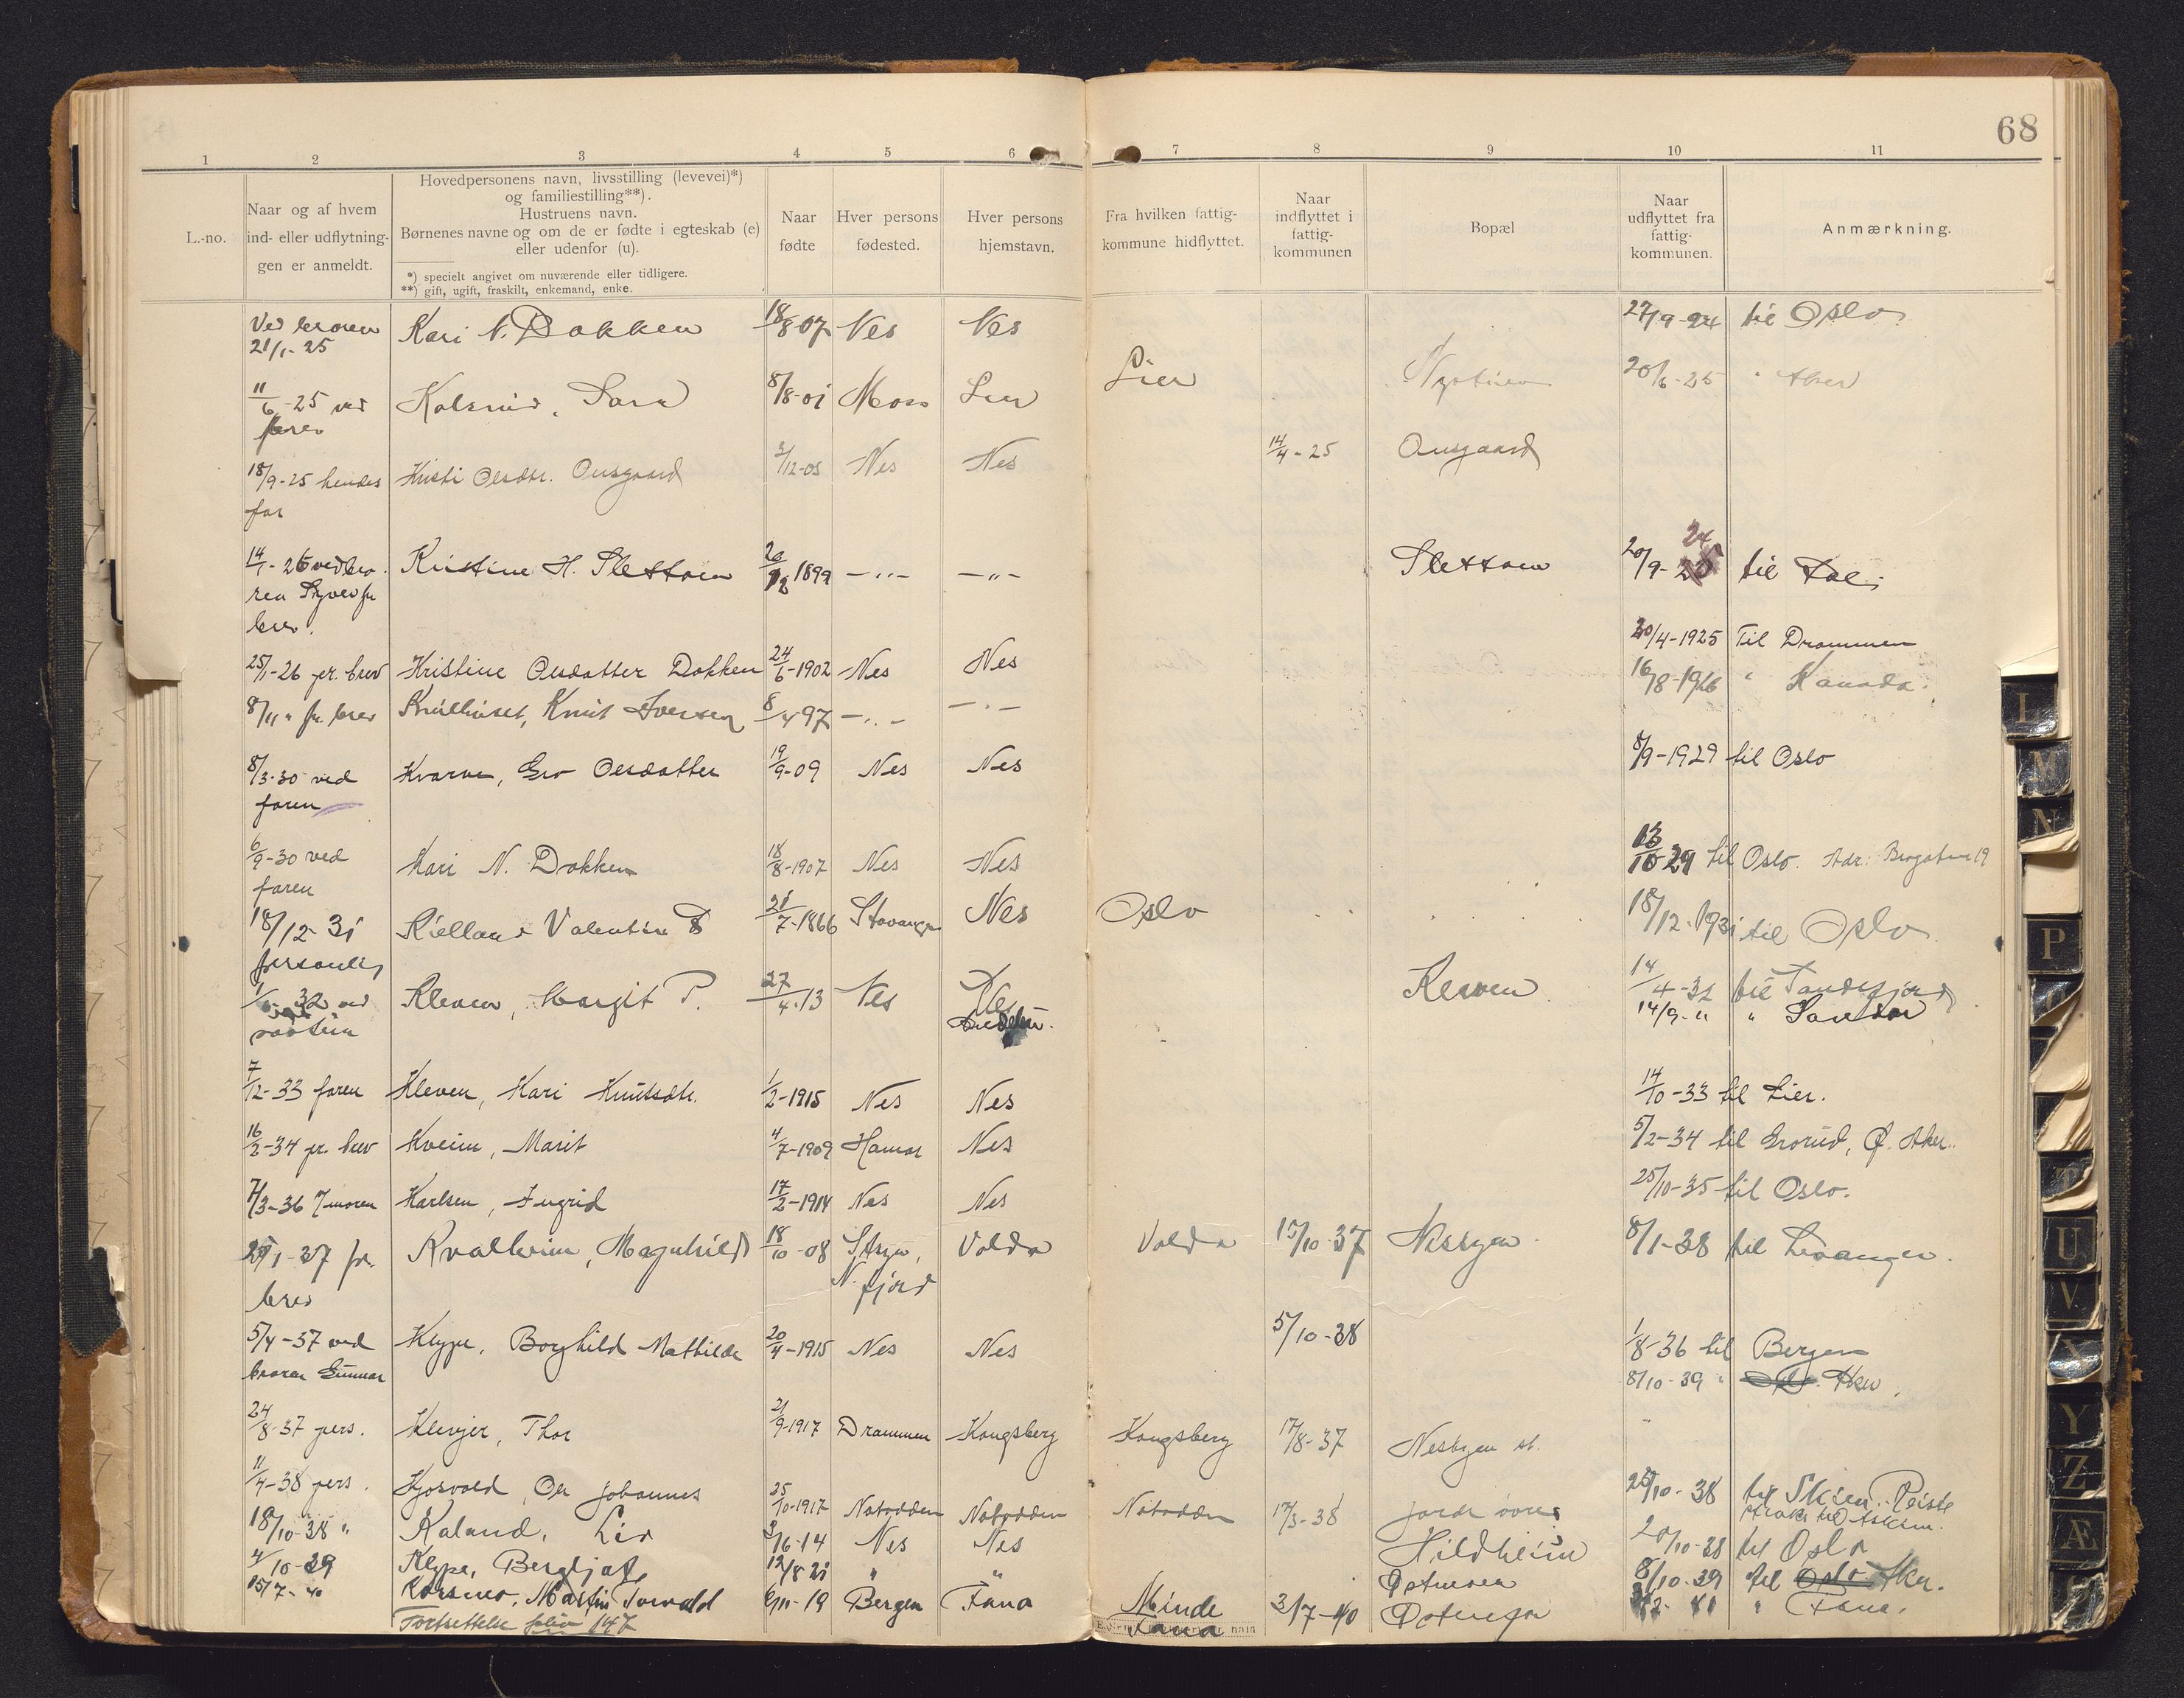 68
1 2 3 4 5 6 7 8 9 10 11
L.-no.
Naar og af hvem
ind- eller udflytnin-
gen er anmeldt.
Hovedpersonens navn, livsstilling (levevei)*)
og familiestilling**).
Hustruens navn.
Børnenes navne og om de er fødte i egteskab (e)
eller udenfor (u).
*) specielt angivet om nuværende eller tidligere.
**) gift, ugift, fraskilt, enkemand, enke.
Naar
fødte
Hver persons
fødested.
Hver persons
hjemstavn.
Fra hvilken fattig-
kommune hidflyttet.
Naar
indflyttet i
fattig-
kommunen
Bopæl
Naar
udflyttet fra
fattig-
kommunen.
Anmærkning.
Ved broren Kari N. Dokken 18/8-07 Nes Nes 27/9-24 til Oslo
21/1-25
11/6-25 ved Kolsrud, Sara 8/8-01 Moss Lier Lier 20/6-25 " Aker
brev
18/9-25 hendes Kristi Olsdtr. Ousgaard /12-05 Nes Nes 14/4-25 Ousgaard
far
14/1-26 ved bro- Kristine H. Slettoen 1899 -"- -"- Slettoen 20/9-24 til
ren
brev.
25/1-26 pr. brev Kristine Olsdatter Dokken 24/6-1902 Nes Nes 30/4-1925 Til Drammen
8/11 " pr brev Knut Iversen 8/4 97 -"- -"- 16/8-1926 " Kanada.
8/3-30 ved Kvarve, Gro Olsdatter 19/9-09 Nes Nes 8/9-1929 til Oslo
faren
6/9-30 ved Kari N. Dokken 18/8-1907 Nes Nes 13/10-29 til Oslo. Adr:
faren
18/12-31 Kielland Valentin 21/7-1866 Stavanger Nes Oslo 18/12-1931 til Oslo
personlig
32 ved Kleven, Margit P. 27/4-13 Nes Nes Kleven 14/4-32 til Sandefjord
14/9-" " Sandar
7/12-33 faren Kleven, Kari Knutsdtr. 1/2-1915 Nes Nes 14/10-33 til Lier.
16/2-34 pr. brev Kveim, Marit 4/7-1909 Hamar Nes 5/2-34 til Grorud, Ø. Aker.
7/3-36 moren Karlsen, Ingrid 17/2-1914 Nes Nes 25/10-35 til Oslo.
/1-37 pr. Kvalheim, Magnhild 18/10-08 Stryn, Volda Volda 15/10-37 Nesbyen 8/1-38 til Levanger.
brev N. fjord
5/4-37 ved Klype, Borghild Mathilde 20/4-1915 Nes Nes 5/10-38 1/8-36 til Bergen
broren Gunnar 8/10-39 " Aker.
24/8-37 pers. Klunger, Thor 21/9-1917 Drammen Kongsberg Kongsberg 17/8-37 Nesbyen st.
11/4-38 pers. Kjosvold, Ole Johannes 25/10-1917 Notodden Notodden Notodden 17/3-38 Jorde øvre 25/10-38 til Skien. Reiste
straks til Askim.
18/10-38 " Kaland, Liv 2/6-14 Nes Nes Hildheim 20/10-38 til Oslo
4/10-39 Klype, Bergljot 12/8-21 " " 8/10-39 til Oslo Aker.
15/7-40 Korsmo, Martin Torvald 6/11-19 Bergen Fana Minde 3/7-40 " Fana.
Fortsettelse folio 147 Fana
L
M
N
P
U
V
X
Y
Z
Æ